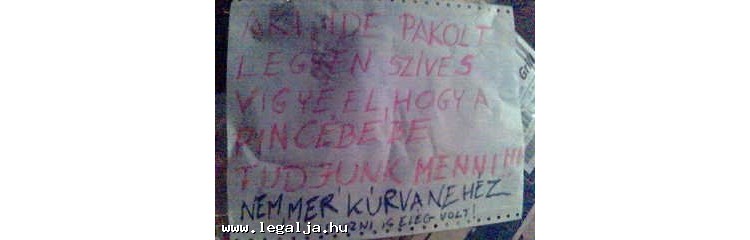 AKI IDE PAKOLT
LEGYEN SZÍVES
VIGYE EL, HOGY A
PINCÉBE BE
TUDJUNK MENNI!!!
NEM MER' KÚRVANEHÉZ
IS ELÉG VOLT!
Gri
www.legalja.hu